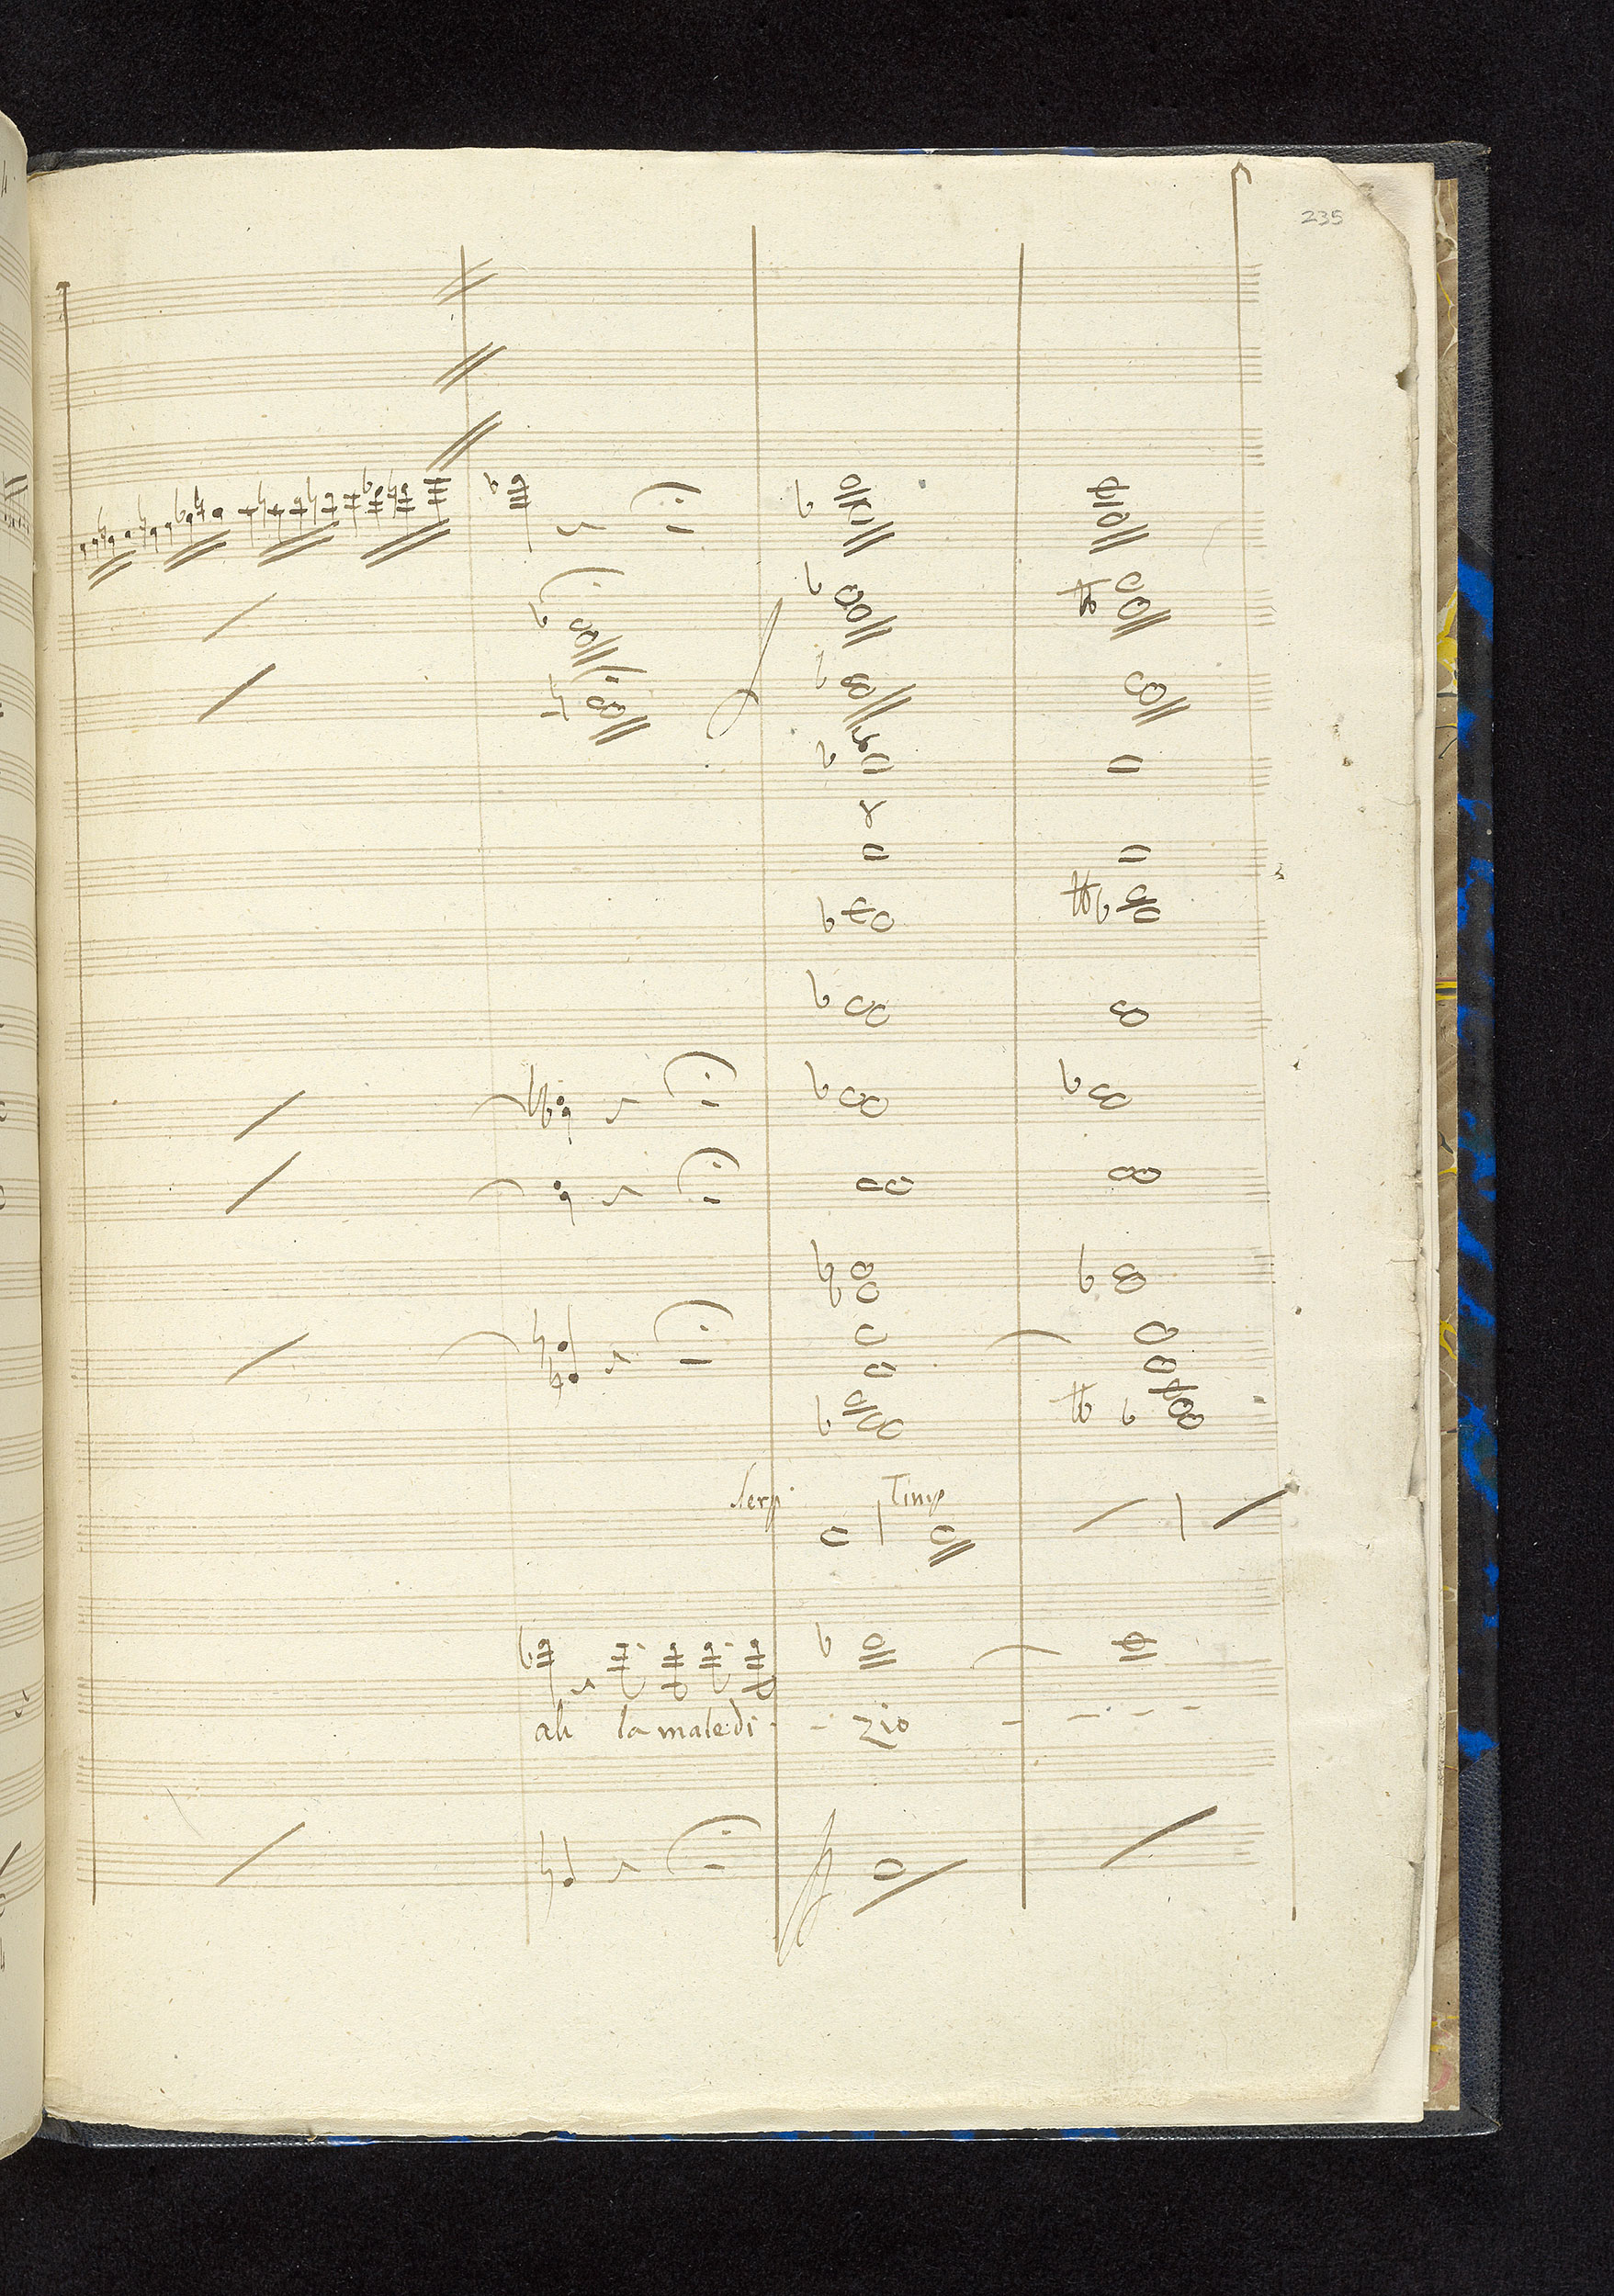 235
Serp. Timp
ah la male:di - - zio - - - - -